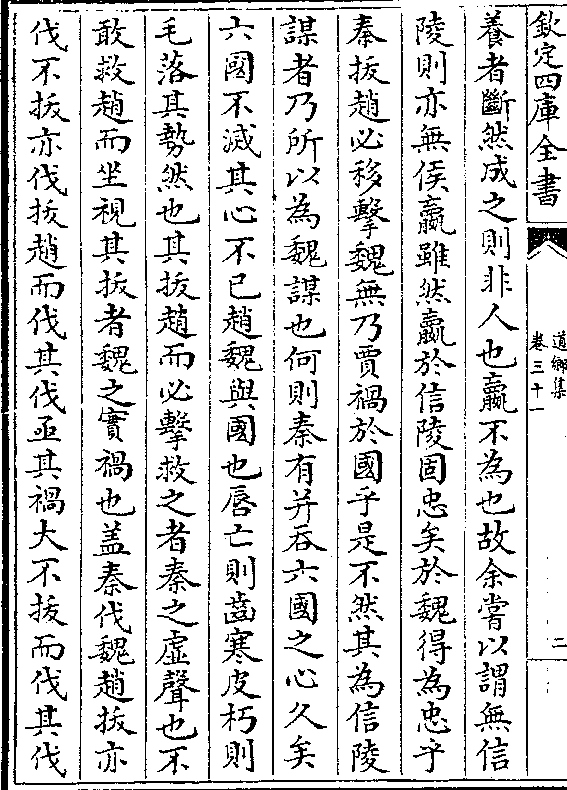 欽定四庫全書
道鄉集
卷三十一
二
養者斷然成之則非人也嬴不為也故余嘗以謂無信
陵則亦無侯嬴雖然嬴於信陵固忠矣於魏得為忠乎
秦拔趙必移擊魏無乃賈禍於國乎是不然其為信陵
謀者乃所以為魏謀也何則秦有并吞六國之心久矣
六國不滅其心不已趙魏與國也唇亡則齒寒皮朽則
毛落其勢然也其拔趙而必擊救之者秦之虛聲也不
敢救趙而坐視其拔者魏之實禍也盖秦伐魏趙拔亦
伐不拔亦伐拔趙而伐其伐亟其禍大不拔而伐其伐